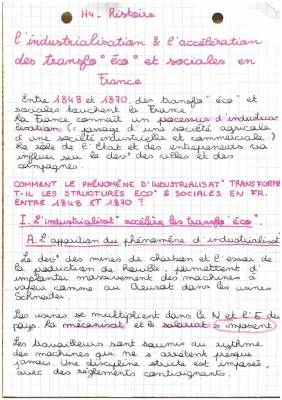 H4 - Histoire
L'industrialisation & l'accélération
des transfo° éco° et sociales en
France
Entre 1848 et 1870, des transfo° éco° et
sociales touchent la France
La France connaît un processus d'industria-
lisation (= passage d'une société agricole
à une société industrielle et commerciale.)
Le rôle de l'Etat et des entrepreneurs va
influer sur le dev° des villes et des
campagnes.
COMMENT LE PHÉNOMÈNE D'INDUSTRIALISAT° TRANSFORME
T-IL LES STRUCTURES ECO° & SOCIALES EN FR.
ENTRE 1848 ET 1870 ?
I. L'industrialisat° accélère les transfo° éco°.
A. L'apparition du phénomène d'industrialisat°
Le dev° des mines de charbon et l'essor de
la production de houille, permettent d'
implanter massivement des machines à
vapeur comme au Creusot dans les usines
Schneider.
Les usines se multiplient dans le N et l'E du
pays. La mécanisat° et le salariat s'imposent
Les travailleurs sont soumis au rythme
des machines qui ne s'arrêtent presque
jamais. Une discipline stricte est imposée,
avec des règlements contraignants.